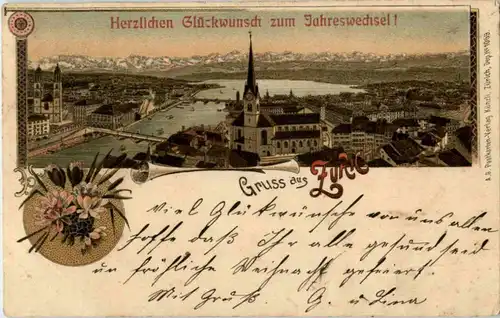 Herzlichen Glückwunsch zum Jahreswechsel!
Gruss aus
Viel Glückwünsche von uns allen
hoffe daß Ihr alle gesund seid
un fröhliche Weihnacht gefeiert.
Mit Gruß G. u Lina